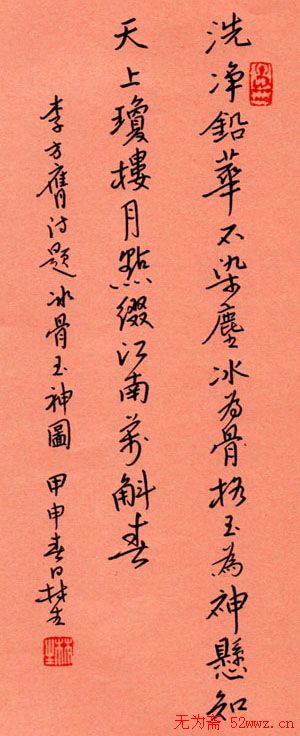 洗净鉛華不染塵冰为骨格玉為神懸知
天上瓊樓月點綴江南萬斛春
李方膺诗題冰骨玉神圖 甲申春日
无为斋 52wwz.cn